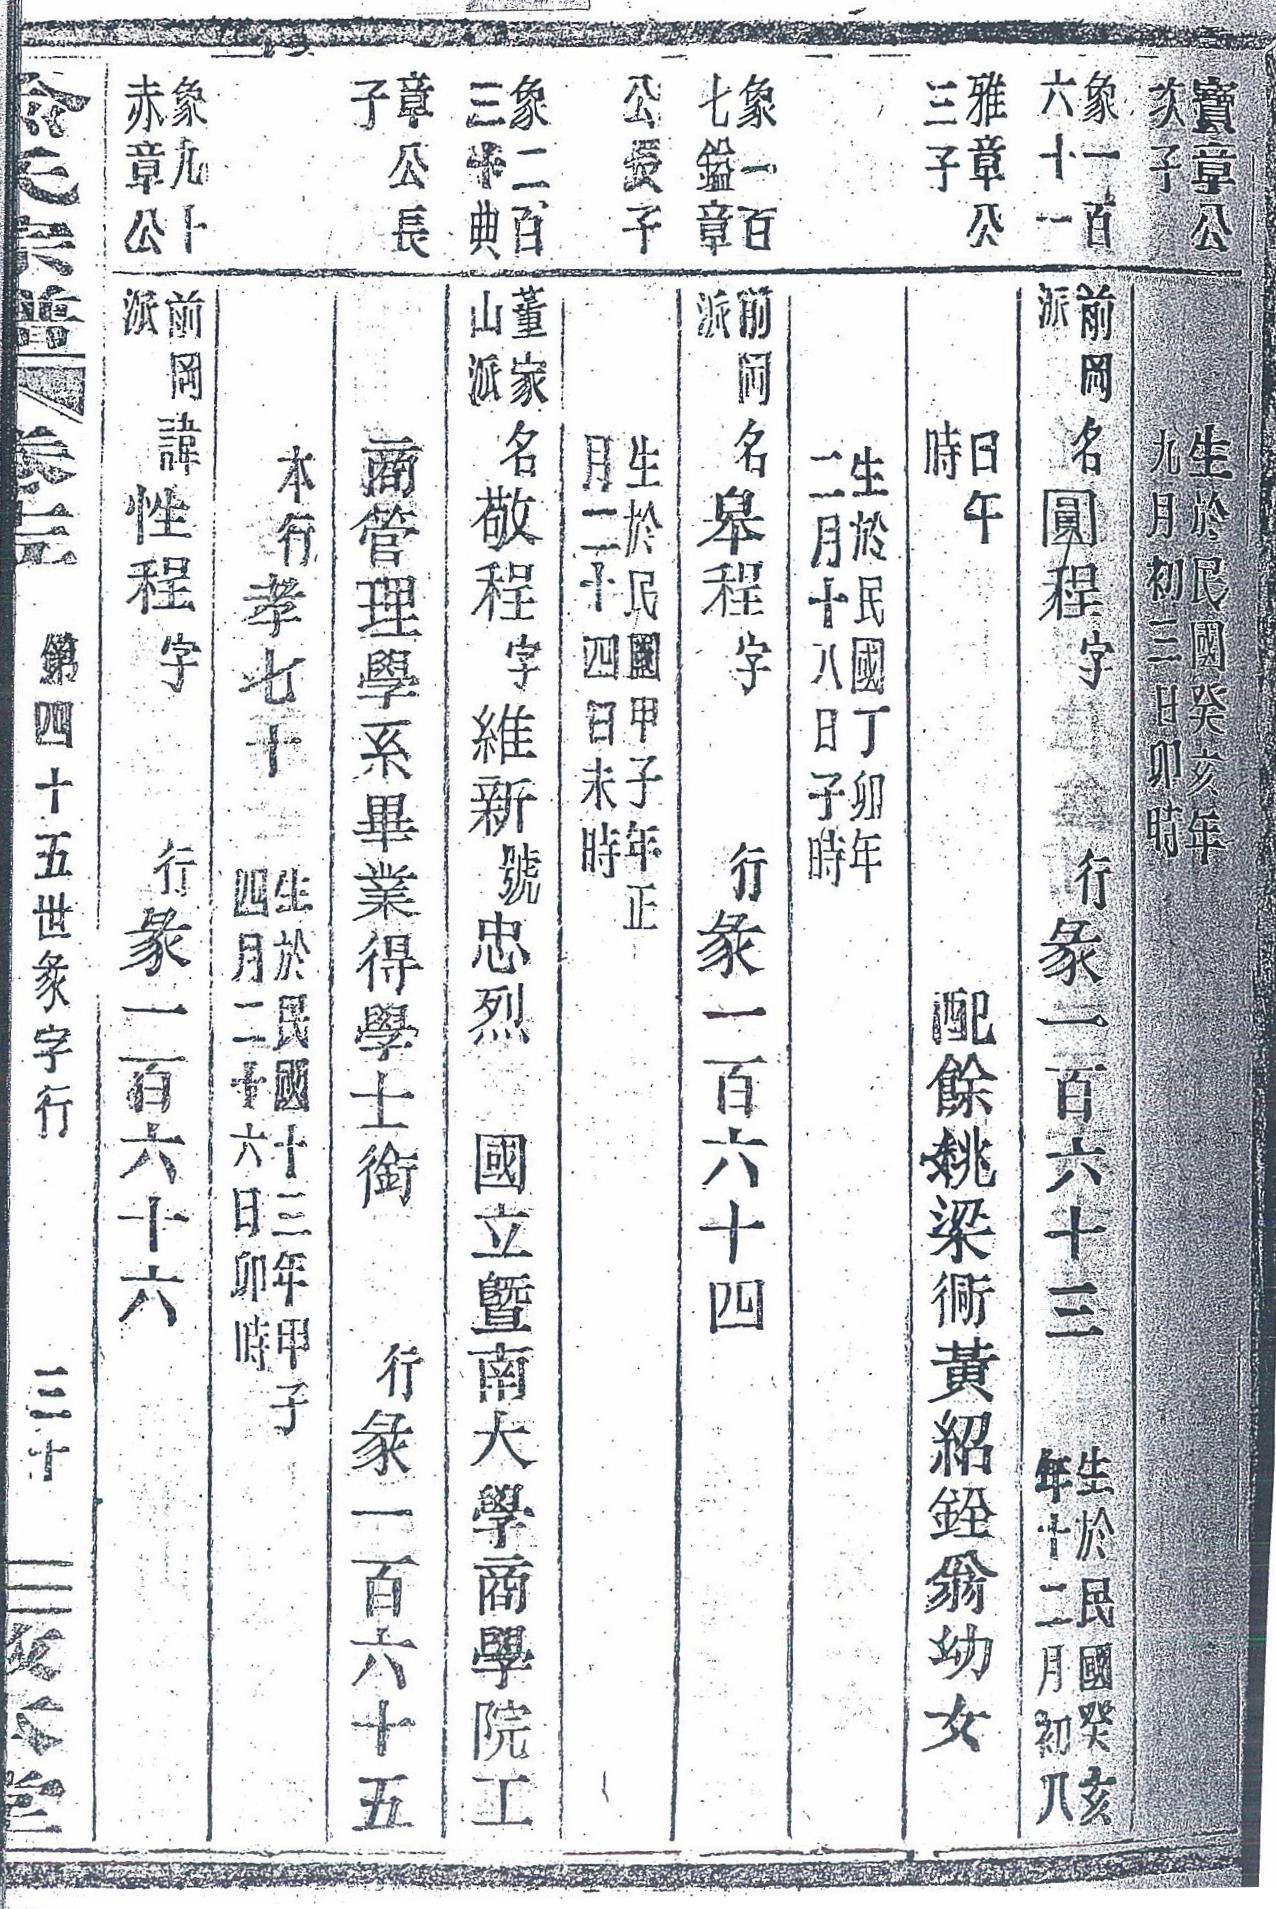 寶章公
次子
生於民國癸亥年
九月初三日卯時
象一百
六十一
前岡
派
名圓程字
行彖一百六十三
生於民國癸亥
年十二月初八
雅章公
三子
日午
時
配餘姚梁衕黃紹銓翁幼女
生於民國丁卯年
二月十八日子時
象一百
七鎰章
前岡
派
名皋程字
行彖一百六十四
公長子
生於民國甲子年正
月二十四日未時
象二百
三十典
董家
山派
名敬程字維新號忠烈
國立暨南大學商學院工
章公長
子
商管理學系畢業得學士銜
行彖一百六十五
本行孝七十三
生於民國十三年甲子
四月二十六日卯時
象九十
赤章公
前岡
派
諱性程字
行彖一百六十六
氏宗譜
卷
第四十五世彖字行
三十
堂